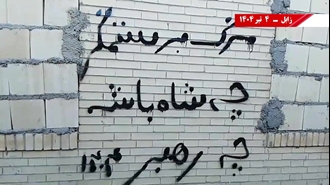 زابل - ۴ تیر ۱۴۰۴
مرگ بر ستمگر
چه شاه باشه
چه رهبر ۱۴۰۴